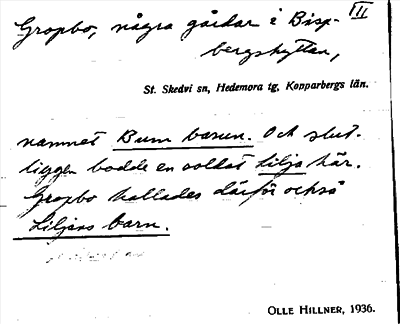 Gropbo, några gårdar i Bisp- III
bergshyttan,
St. Skedvi sn, Hedemora tg, Kopparbergs län.
namnet Bum barun. Och slut-
ligen bodde en soldat Lilja här.
Gropbo kallades därför också
Liljans barn.
OLLE HILLNER, 1936.